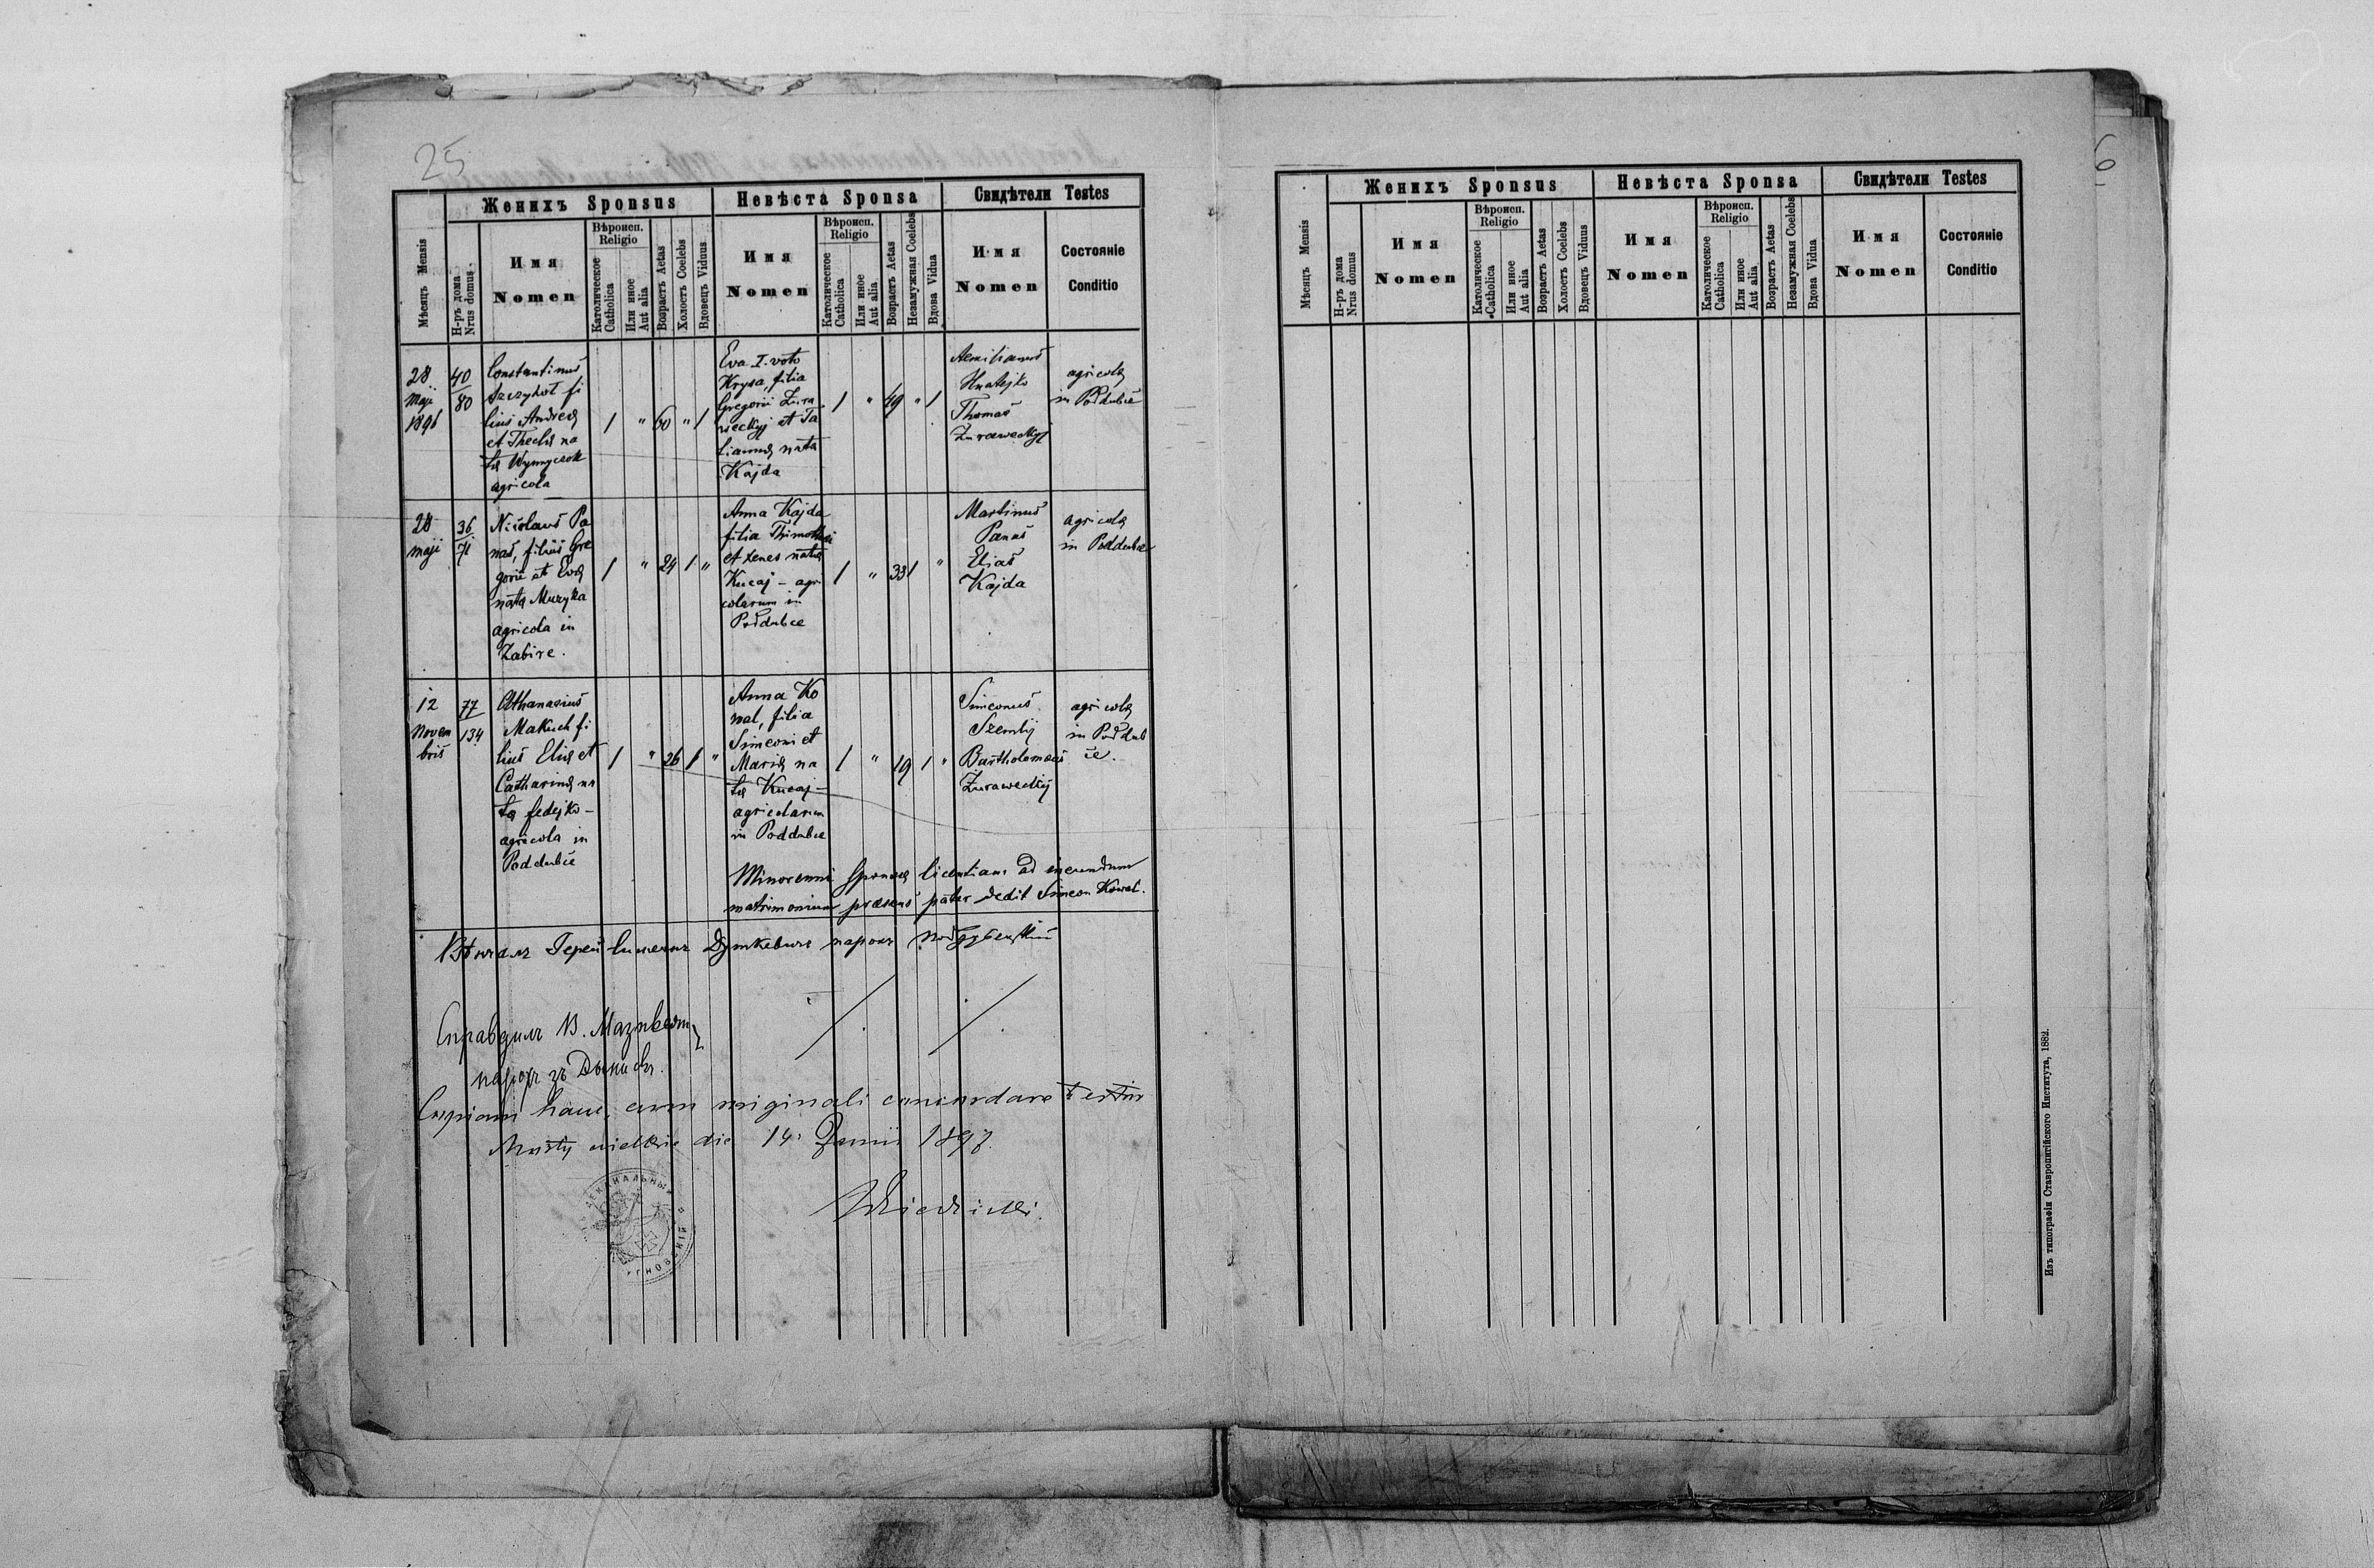 25
Женихъ Sponsus
Невѣста Sponsa
Свидѣтели Testes
Мѣсяцъ Mensis
Н-ръ дома
Nrus domus
Имя
Nomen
Вѣроисп.
Religio
Католическое
Catholica
Или иное
Aut alia
Возрастъ Aetas
Холостъ Coelebs
Вдовецъ Viduus
Имя
Nomen
Вѣроисп.
Religio
Католическое
Catholica
Или иное
Aut alia
Возрастъ Aetas
Незамужная Coelebs
Вдова Vidua
Имя
Nomen
Состояніе
Conditio
28
Maji
1896
40
80
Constantinus
Szczyhol fi
lius Andreæ
et Theclæ na
tæ Wynnyczok
agricola
1
"
60
"
1
Eva I. voto
Krysa, filia
Gregorii Zura
weckyj et Ta
tiannæ nata
Kajda
1
"
49
"
1
Aemilianus
Hnatejko
Thomas
Zuraweckyj
agricolæ
in Poddubce
28
maji
36
71
Nicolaus Pa
nas, filius Gre
gorii et Evæ
natæ Muzyka
agricola in
Zabire.
1
"
24
1
"
Anna Kajda
filia Thimothei
et Xenes natæ
Kucaj - agri
colarum in
Poddubce
1
"
33
1
"
Martinus
Panas
Elias
Kajda
agricolæ
in Poddubce
12
Novem
bris
77
134
Athanasius
Makuch fi
lius Eliæ et
Catharinæ na
tæ Fedejko -
agricola in
Poddubce
1
"
26
1
"
Anna Ko
wal, filia
Simeoni et
Mariæ na
tæ Kucaj -
agricolarum
in Poddubce
1
"
19
1
"
Simeonus
Szemlij
Bartholomæus
Zuraweckij
agricolæ
in Poddub
ce.
Minorenni sponsæ licentiam ad ineundum
matrimonium præsens pater dedit Simeon Kowal.
Вѣнчалъ Іерей Симеонъ парохъ поддубецкій
Справдилъ В.
парохъ зъ
Copiam hanc cum originali concordare testor
Mosty wielkie die 14 Junii 1897.
ДЕКАНАЛЬНЫЙ
6
Женихъ Sponsus
Невѣста Sponsa
Свидѣтели Testes
Мѣсяцъ Mensis
Н-ръ дома
Nrus domus
Имя
Nomen
Вѣроисп.
Religio
Католическое
Catholica
Или иное
Aut alia
Возрастъ Aetas
Холостъ Coelebs
Вдовецъ Viduus
Имя
Nomen
Вѣроисп.
Religio
Католическое
Catholica
Или иное
Aut alia
Возрастъ Aetas
Незамужная Coelebs
Вдова Vidua
Имя
Nomen
Состояніе
Conditio
Изъ типографіи Ставропигійского Института, 1882.